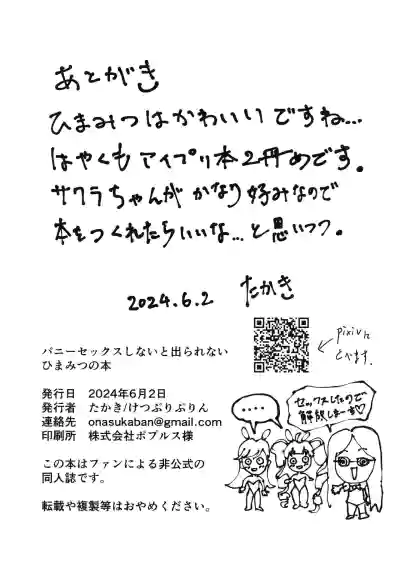 あとがき
ひまみつはかわいいですね...
はやくもアイプリ本2冊めです。
サクラちゃんがかなり好みなので
本をつくれたらいいな...と思いつつ。
2024.6.2 たかき
pixivに
とべます。
バニーセックスしないと出られない
ひまみつの本
発行日 2024年6月2日
発行者 たかき/けつぷりぷりん
連絡先 onasukaban@gmail.com
印刷所 株式会社ポプルス様
この本はファンによる非公式の
同人誌です。
転載や複製等はおやめください。
....
セックスしたので
解放しまーす♡